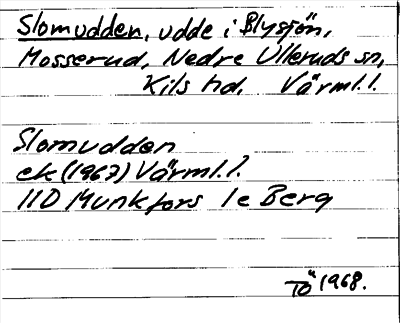 Slomudden, udde i Blysjön,
Mosserud, Nedre Ulleruds sn,
Kils hd. Värml.l.
Slomudden
ek (1967) Värml.l.
11D Munkfors 1e Berg
TÖ 1968.